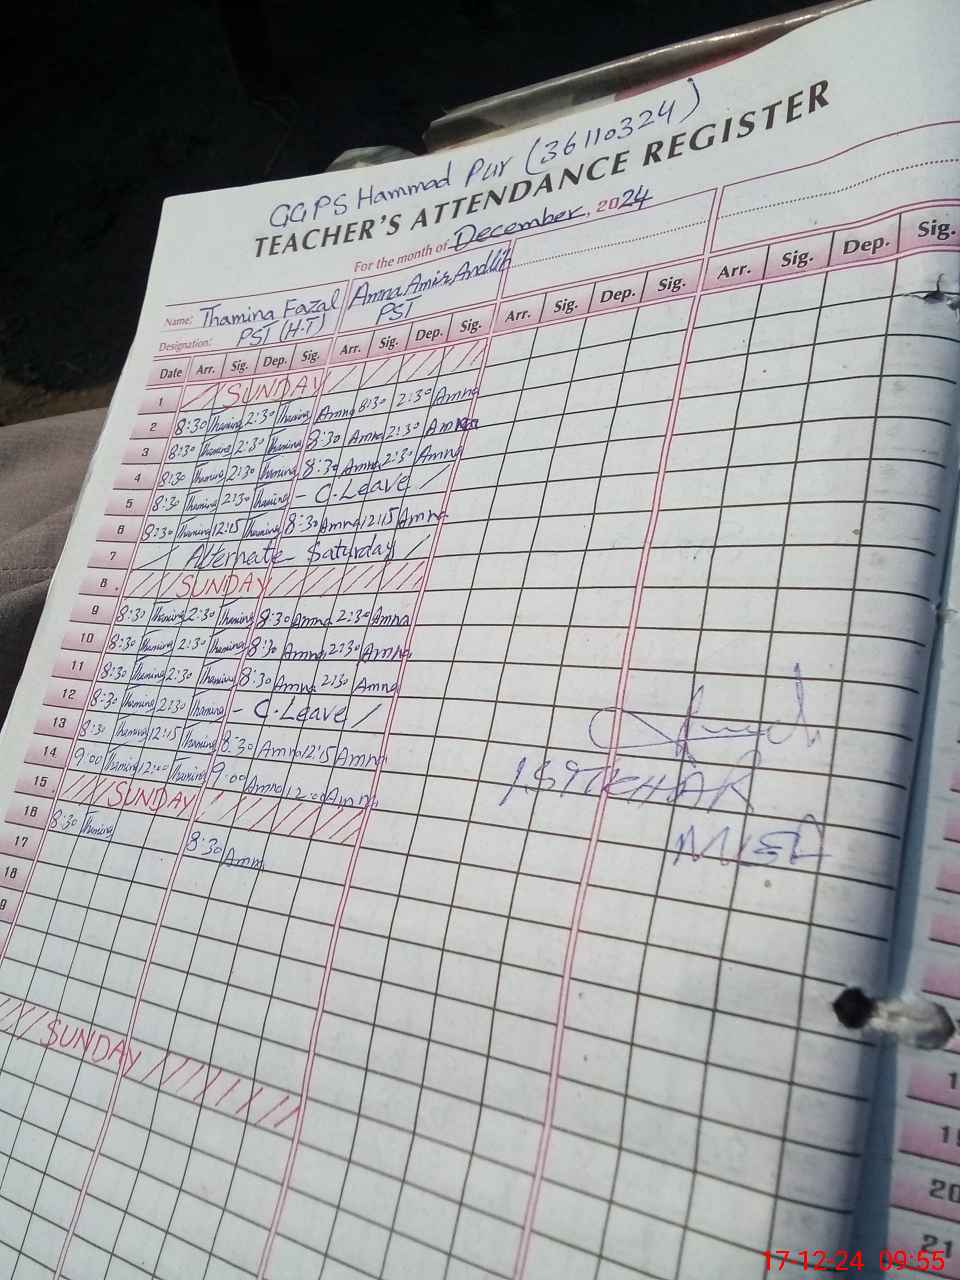 GGPS Hammad Pur (36110324)
TEACHER'S ATTENDANCE REGISTER
For the month of December, 2024
Name: Thamina Fazal Amna Amir
Designation: PST (H.T) PST
Date Arr. Sig. Dep. Sig. Arr. Sig. Dep. Sig. Arr. Sig. Dep. Sig. Arr. Sig. Dep. Sig.
1 SUNDAY
2 8:30 Thamina 2:30 Thamina Amna 8:30 2:30 Amna
3 8:30 Thamina 2:30 Thamina 8:30 Amna 2:30 Amna
4 8:30 Thamina 2:30 Thamina 8:30 Amna 2:30 Amna
5 8:30 Thamina 2:30 Thamina - C.Leave /
6 8:30 Thamina 12:15 Thamina 8:30 Amna 12:15 Amna
7 Alternate Saturday
8 SUNDAY
9 8:30 Thamina 2:30 Thamina 8:30 Amna 2:30 Amna
10 8:30 Thamina 2:30 Thamina 8:30 Amna 2:30 Amna
11 8:30 Thamina 2:30 Thamina 8:30 Amna 2:30 Amna
12 8:30 Thamina 2:30 Thamina - C.Leave /
13 8:30 Thamina 12:15 Thamina 8:30 Amna 12:15 Amna
14 9:00 Thamina 12:00 Thamina 9:00 Amna 12:00 Amna
15 SUNDAY
16
17 8:30 Thamina 8:30 Amna
18
9
SUNDAY
1
19
20
21
17-12-24 09:55